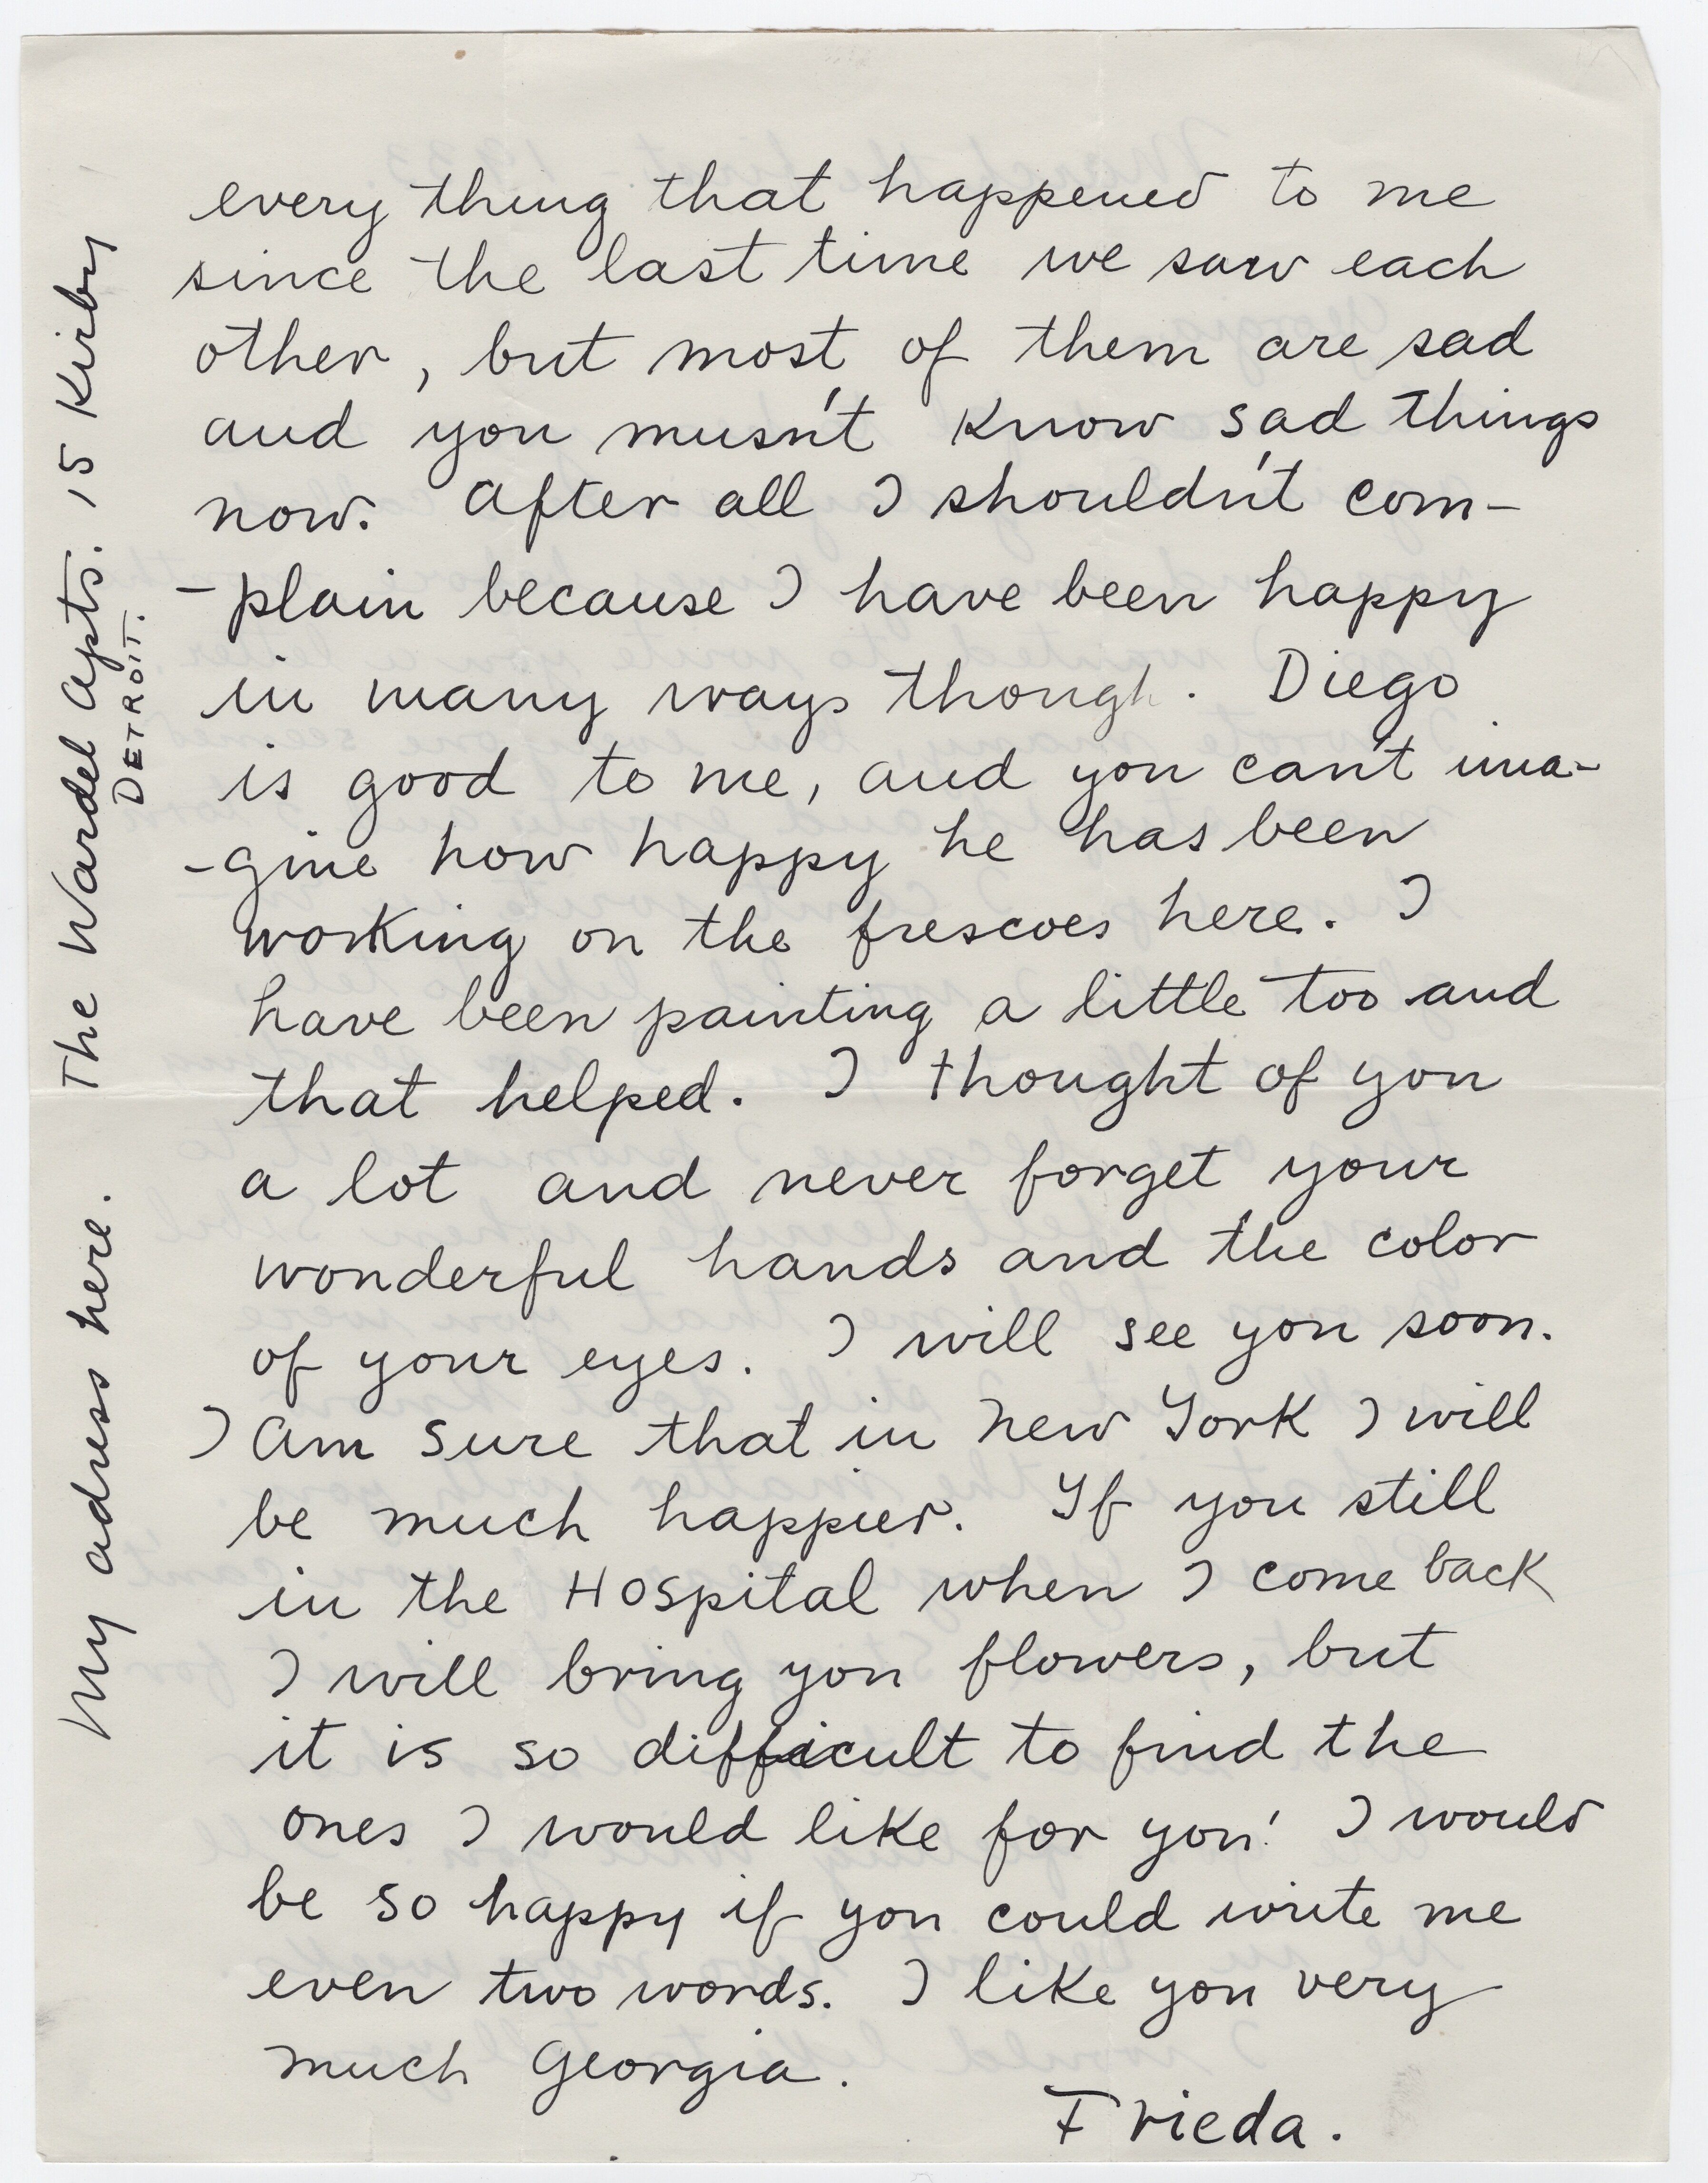 every thing that happened to me
since the last time we saw each
other, but most of them are sad
and you musn't know sad things
now. After all I shouldn't com-
-plain because I have been happy
in many ways though. Diego
is good to me, and you can't ima-
-gine how happy he has been
working on the frescoes here. I
have been painting a little too and
that helped. I thought of you
a lot and never forget your
wonderful hands and the color
of your eyes. I will see you soon.
I am sure that in New York I will
be much happier. If you still
in the Hospital when I come back
I will bring you flowers, but
it is so difficult to find the
ones I would like for you! I would
be so happy if you could write me
even two words. I like you very
much Georgia.
Frieda.
My adress here. The Wardel Apts. 15 Kirby
DETROIT.